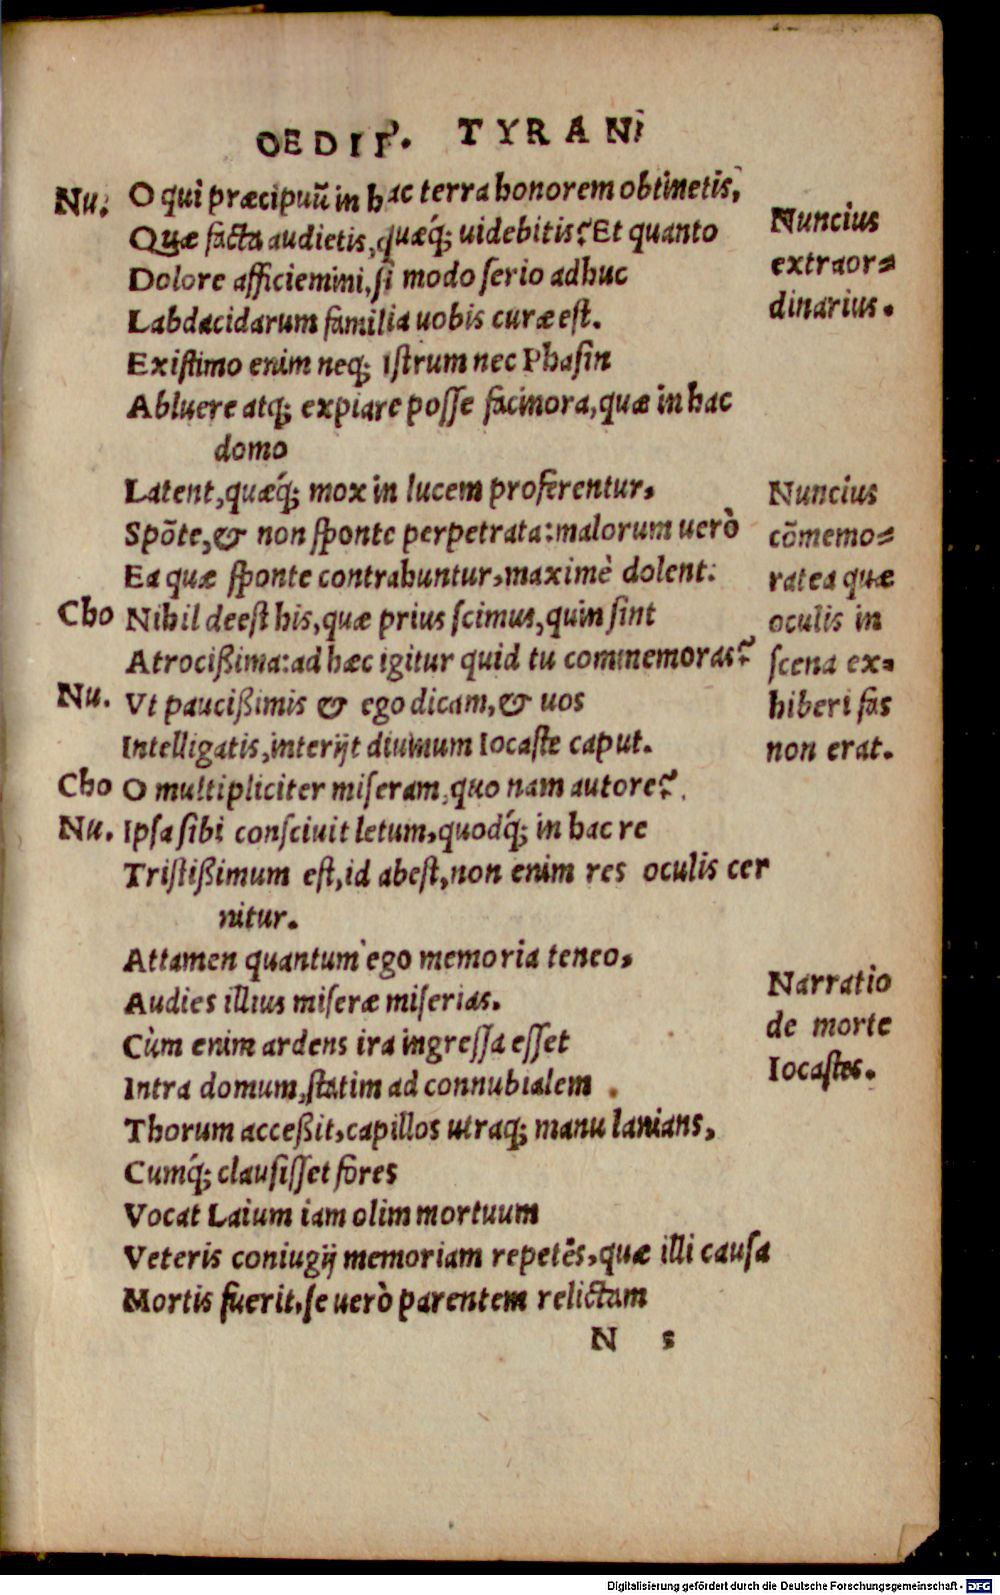 OEDIP. TYRAN
Nu. O qui præcipuũ in hac terra honorem obtinetis,
Quæ facta audietis, quæq́; uidebitis? Et quanto
Dolore afficiemini, si modo serio adhuc
Labdacidarum familia uobis curæ est.
Existimo enim neq; Istrum nec Phasin
Abluere atq; expiare posse facinora, quæ in hac
domo
Latent, quæq́; mox in lucem proferentur,
Spõte, & non sponte perpetrata: malorum uerò
Ea quæ sponte contrahuntur, maximè dolent.
Cho Nihil deest his, quæ prius scimus, quin sint
Atrocißima: ad hæc igitur quid tu commemoras?
Nu. Vt paucißimis & ego dicam, & uos
Intelligatis, interijt diuinum Iocaste caput.
Cho O multipliciter miseram, quo nam autore?
Nu. Ipsa sibi consciuit letum, quodq́; in hac re
Tristißimum est, id abest, non enim res oculis cer
nitur.
Attamen quantum ego memoria teneo,
Audies illius miseræ miserias.
Cùm enim ardens ira ingressa esset
Intra domum, statim ad connubialem
Thorum acceßit, capillos utraq; manu lanians,
Cumq́; clausisset fores
Vocat Laium iam olim mortuum
Veteris coniugij memoriam repetẽs, quæ illi causa
Mortis fuerit, se uerò parentem relictam
N s
Nuncius
extraor-
dinarius.
Nuncius
cõmemo-
rat ea quæ
oculis in
scena ex-
hiberi fas
non erat.
Narratio
de morte
Iocastes.
Digitalisierung gefördert durch die Deutsche Forschungsgemeinschaft - DFG